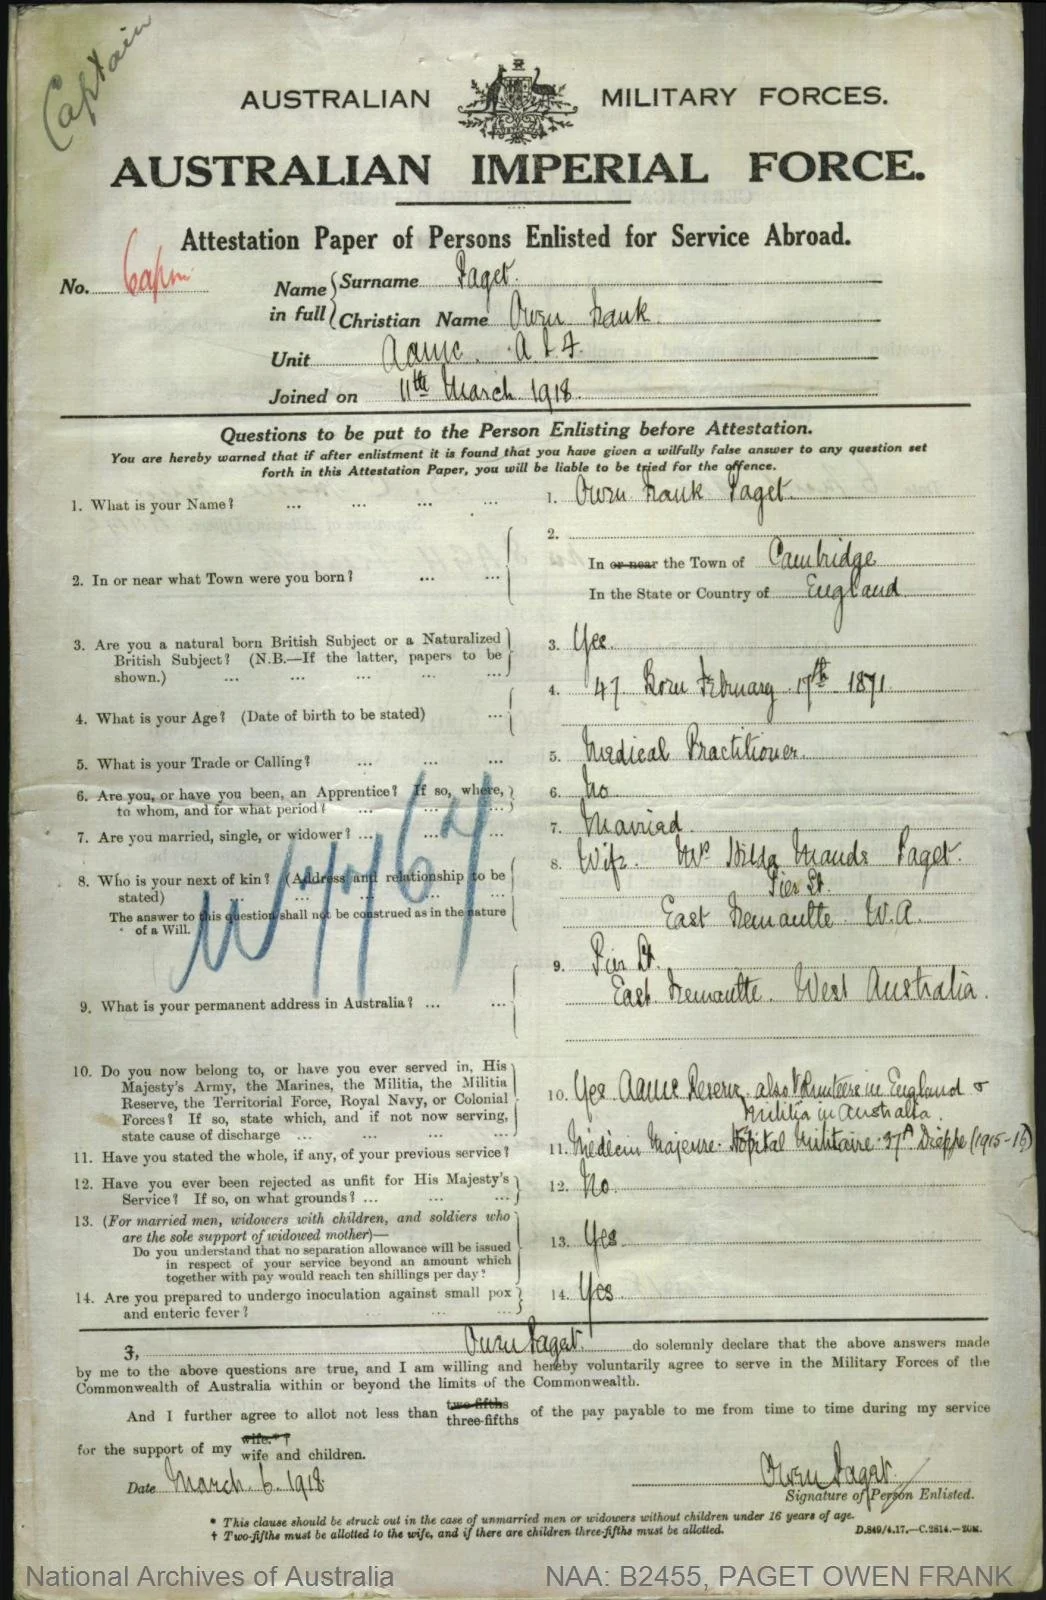 Captain
AUSTRALIAN MILITARY FORCES.
AUSTRALIAN IMPERIAL FORCE.
Attestation Paper of Persons Enlisted for Service Abroad.
No. Captn
Name in full { Surname Paget.
Christian Name Owen Frank.
Unit AAMC. A I F.
Joined on 11th March 1918.
Questions to be put to the Person Enlisting before Attestation.
You are hereby warned that if after enlistment it is found that you have given a wilfully false answer to any question set
forth in this Attestation Paper, you will be liable to be tried for the offence.
1. What is your Name? ... ... ... ... 1. Owen Frank Paget.
2. In or near what Town were you born? ... ... 2.
In or near the Town of Cambridge
In the State or Country of England
3. Are you a natural born British Subject or a Naturalized
British Subject? (N.B.—If the latter, papers to be
shown.) ... ... ... ... ... 3. Yes.
4. What is your Age? (Date of birth to be stated) ... 4. 47. Born February 17th 1871.
5. What is your Trade or Calling? ... ... ... 5. Medical Practitioner.
6. Are you, or have you been, an Apprentice? If so, where,
to whom, and for what period? ... ... ... 6. No
7. Are you married, single, or widower? ... ... ... 7. Married.
8. Who is your next of kin? (Address and relationship to be
stated) ... ... ... ... ...
The answer to this question shall not be construed as in the nature
of a Will.
8. Wife. Mrs Hilda Maude Paget.
Pier St.
East Fremantle W.A.
9. What is your permanent address in Australia? ... ...
9. Pier St.
East Fremantle. West Australia.
10. Do you now belong to, or have you ever served in, His
Majesty's Army, the Marines, the Militia, the Militia
Reserve, the Territorial Force, Royal Navy, or Colonial
Forces? If so, state which, and if not now serving,
state cause of discharge ... ... ... ...
10. Yes AAMC Reserve, also Volunteers in England &
Militia in Australia.
11. Have you stated the whole, if any, of your previous service? 11. Médecin Majeure. Hôpital Militaire 37A Dieppe (1915-16)
12. Have you ever been rejected as unfit for His Majesty's
Service? If so, on what grounds? ... ... ... 12. No.
13. (For married men, widowers with children, and soldiers who
are the sole support of widowed mother)—
Do you understand that no separation allowance will be issued
in respect of your service beyond an amount which
together with pay would reach ten shillings per day?
13. Yes
14. Are you prepared to undergo inoculation against small pox
and enteric fever? ... ... ... 14. Yes
I, Owen Paget. do solemnly declare that the above answers made
by me to the above questions are true, and I am willing and hereby voluntarily agree to serve in the Military Forces of the
Commonwealth of Australia within or beyond the limits of the Commonwealth.
And I further agree to allot not less than two-fifths three-fifths of the pay payable to me from time to time during my service
for the support of my wife.*† wife and children.
Date March 6. 1918
Owen Paget.
Signature of Person Enlisted.
* This clause should be struck out in the case of unmarried men or widowers without children under 16 years of age.
† Two-fifths must be allotted to the wife, and if there are children three-fifths must be allotted.
D.849/4.17.—C.2814.—20M.
National Archives of Australia
NAA: B2455, PAGET OWEN FRANK